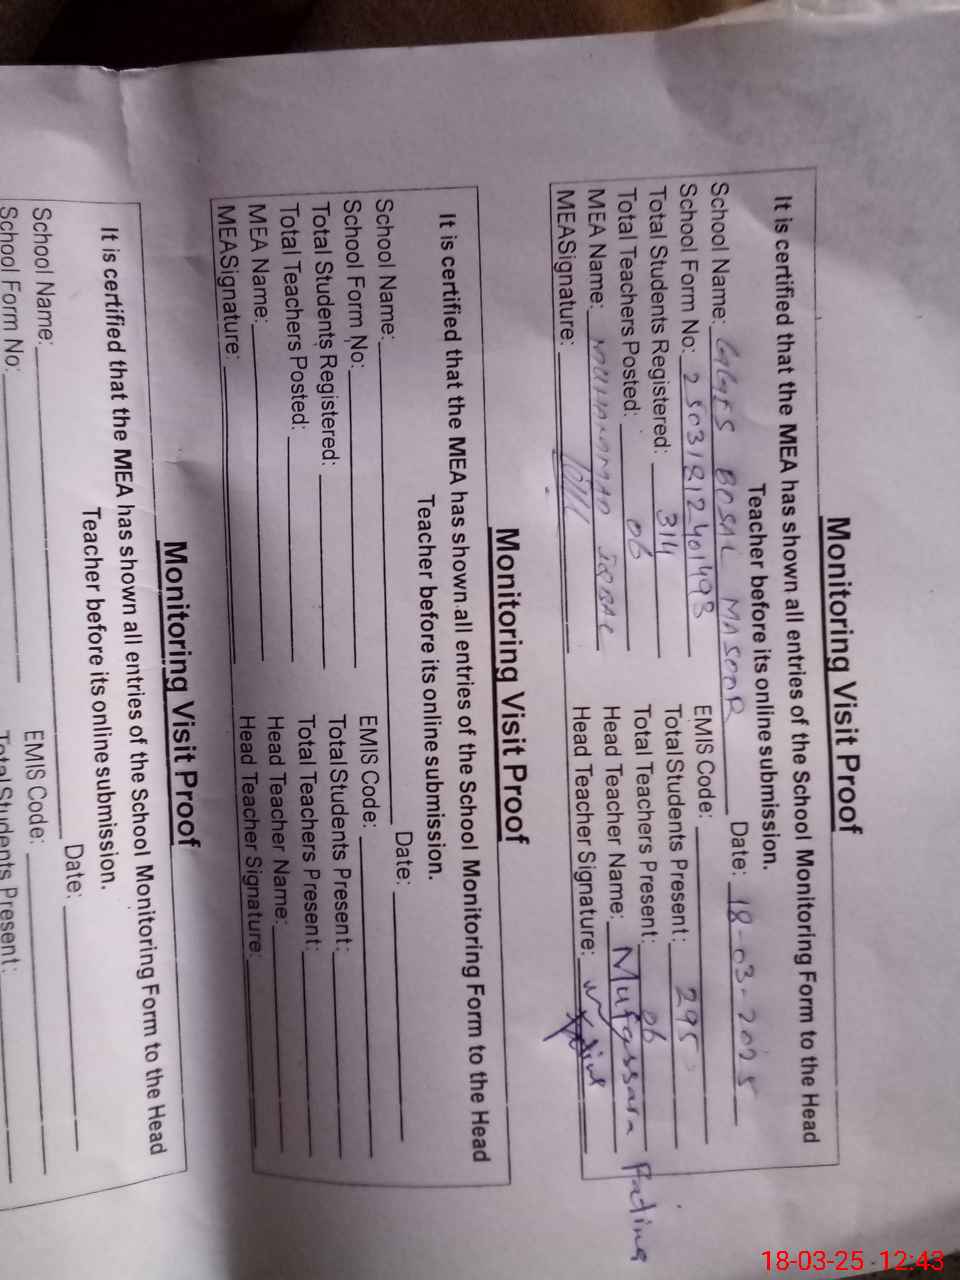 Monitoring Visit Proof
It is certified that the MEA has shown all entries of the School Monitoring Form to the Head
Teacher before its online submission.
School Name: GGES BOSAL MASOOR Date: 18-03-2025
School Form No: EMIS Code:
Total Students Registered: 314 Total Students Present: 295
Total Teachers Posted: 06 Total Teachers Present: 06
MEA Name: MUHAMMAD IQBAL Head Teacher Name: Mufassara
MEASignature: Head Teacher Signature:
Monitoring Visit Proof
It is certified that the MEA has shown all entries of the School Monitoring Form to the Head
Teacher before its online submission.
School Name: Date:
School Form No: EMIS Code:
Total Students Registered: Total Students Present:
Total Teachers Posted: Total Teachers Present:
MEA Name: Head Teacher Name:
MEASignature: Head Teacher Signature:
Monitoring Visit Proof
It is certified that the MEA has shown all entries of the School Monitoring Form to the Head
Teacher before its online submission.
School Name: Date:
School Form No: EMIS Code:
Total Students Present:
18-03-25 12:43